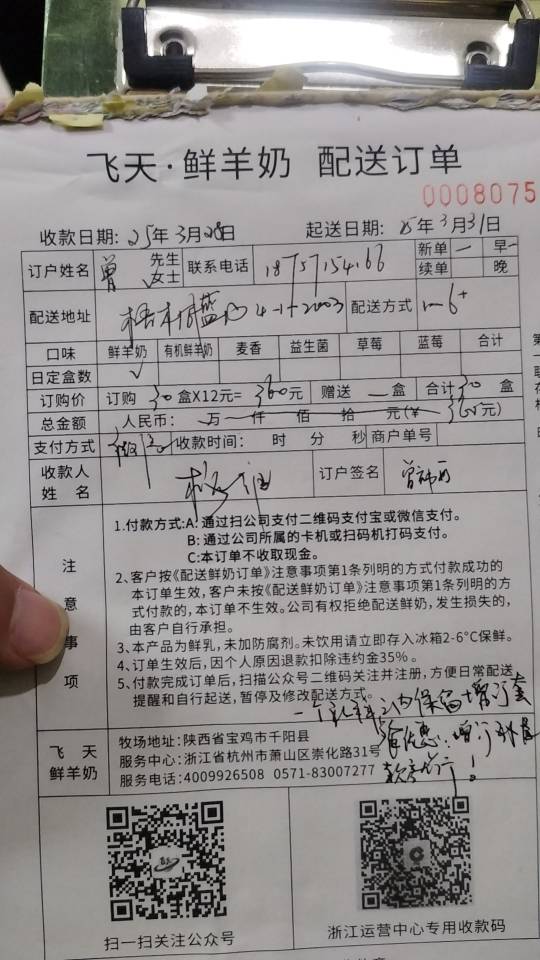 飞天·鲜羊奶 配送订单
0008075
收款日期: 25年3月28日 起送日期: 25年3月31日
订户姓名 曾 先生 女士 联系电话 18757154166 新单 一 早 一
续单 晚
配送地址 4-1-2003 配送方式
口味 鲜羊奶 有机鲜羊奶 麦香 益生菌 草莓 蓝莓 合计
日定盒数 √
订购价 订购 30 盒X12元= 360元 赠送 一 盒 合计 30 盒
总金额 人民币: 万 仟 佰 拾 元(¥ 元)
支付方式 收款时间: 时 分 秒 商户单号
收款人 姓名 订户签名
注意事项
1.付款方式:A: 通过扫公司支付二维码支付宝或微信支付。
B: 通过公司所属的卡机或扫码机打码支付。
C:本订单不收取现金。
2、客户按《配送鲜奶订单》注意事项第1条列明的方式付款成功的
本订单生效,客户未按《配送鲜奶订单》注意事项第1条列明的方
式付款的,本订单不生效。公司有权拒绝配送鲜奶,发生损失的,
由客户自行承担。
3、本产品为鲜乳,未加防腐剂。未饮用请立即存入冰箱2-6°C保鲜。
4、订单生效后,因个人原因退款扣除违约金35%。
5、付款完成订单后,扫描公众号二维码关注并注册,方便日常配送
提醒和自行起送,暂停及修改配送方式。
飞天 鲜羊奶
牧场地址:陕西省宝鸡市千阳县
服务中心:浙江省杭州市萧山区崇化路31号
服务电话:4009926508 0571-83007277
扫一扫关注公众号 浙江运营中心专用收款码